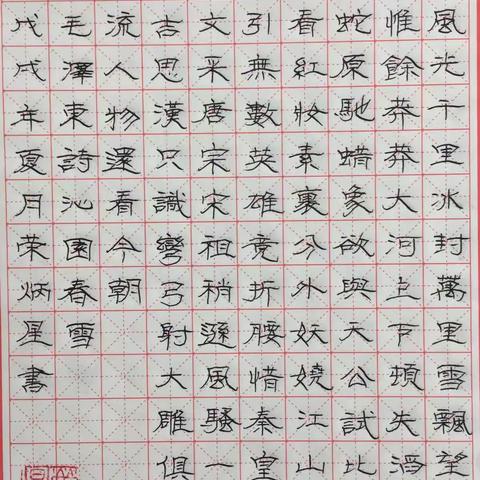 風光千里冰封萬里雪飄望
惟餘莽莽大河上下頓失滔
蛇原馳蜡象欲與天公試比
看紅妝素裹分外妖嬈江山
引無數英雄竞折腰惜秦皇
文采唐宗宋祖稍遜風騷一
吉思漢只識彎弓射大雕俱
流人物還看今朝
毛澤東詩沁園春雪
戊戌年夏月荣炳星書